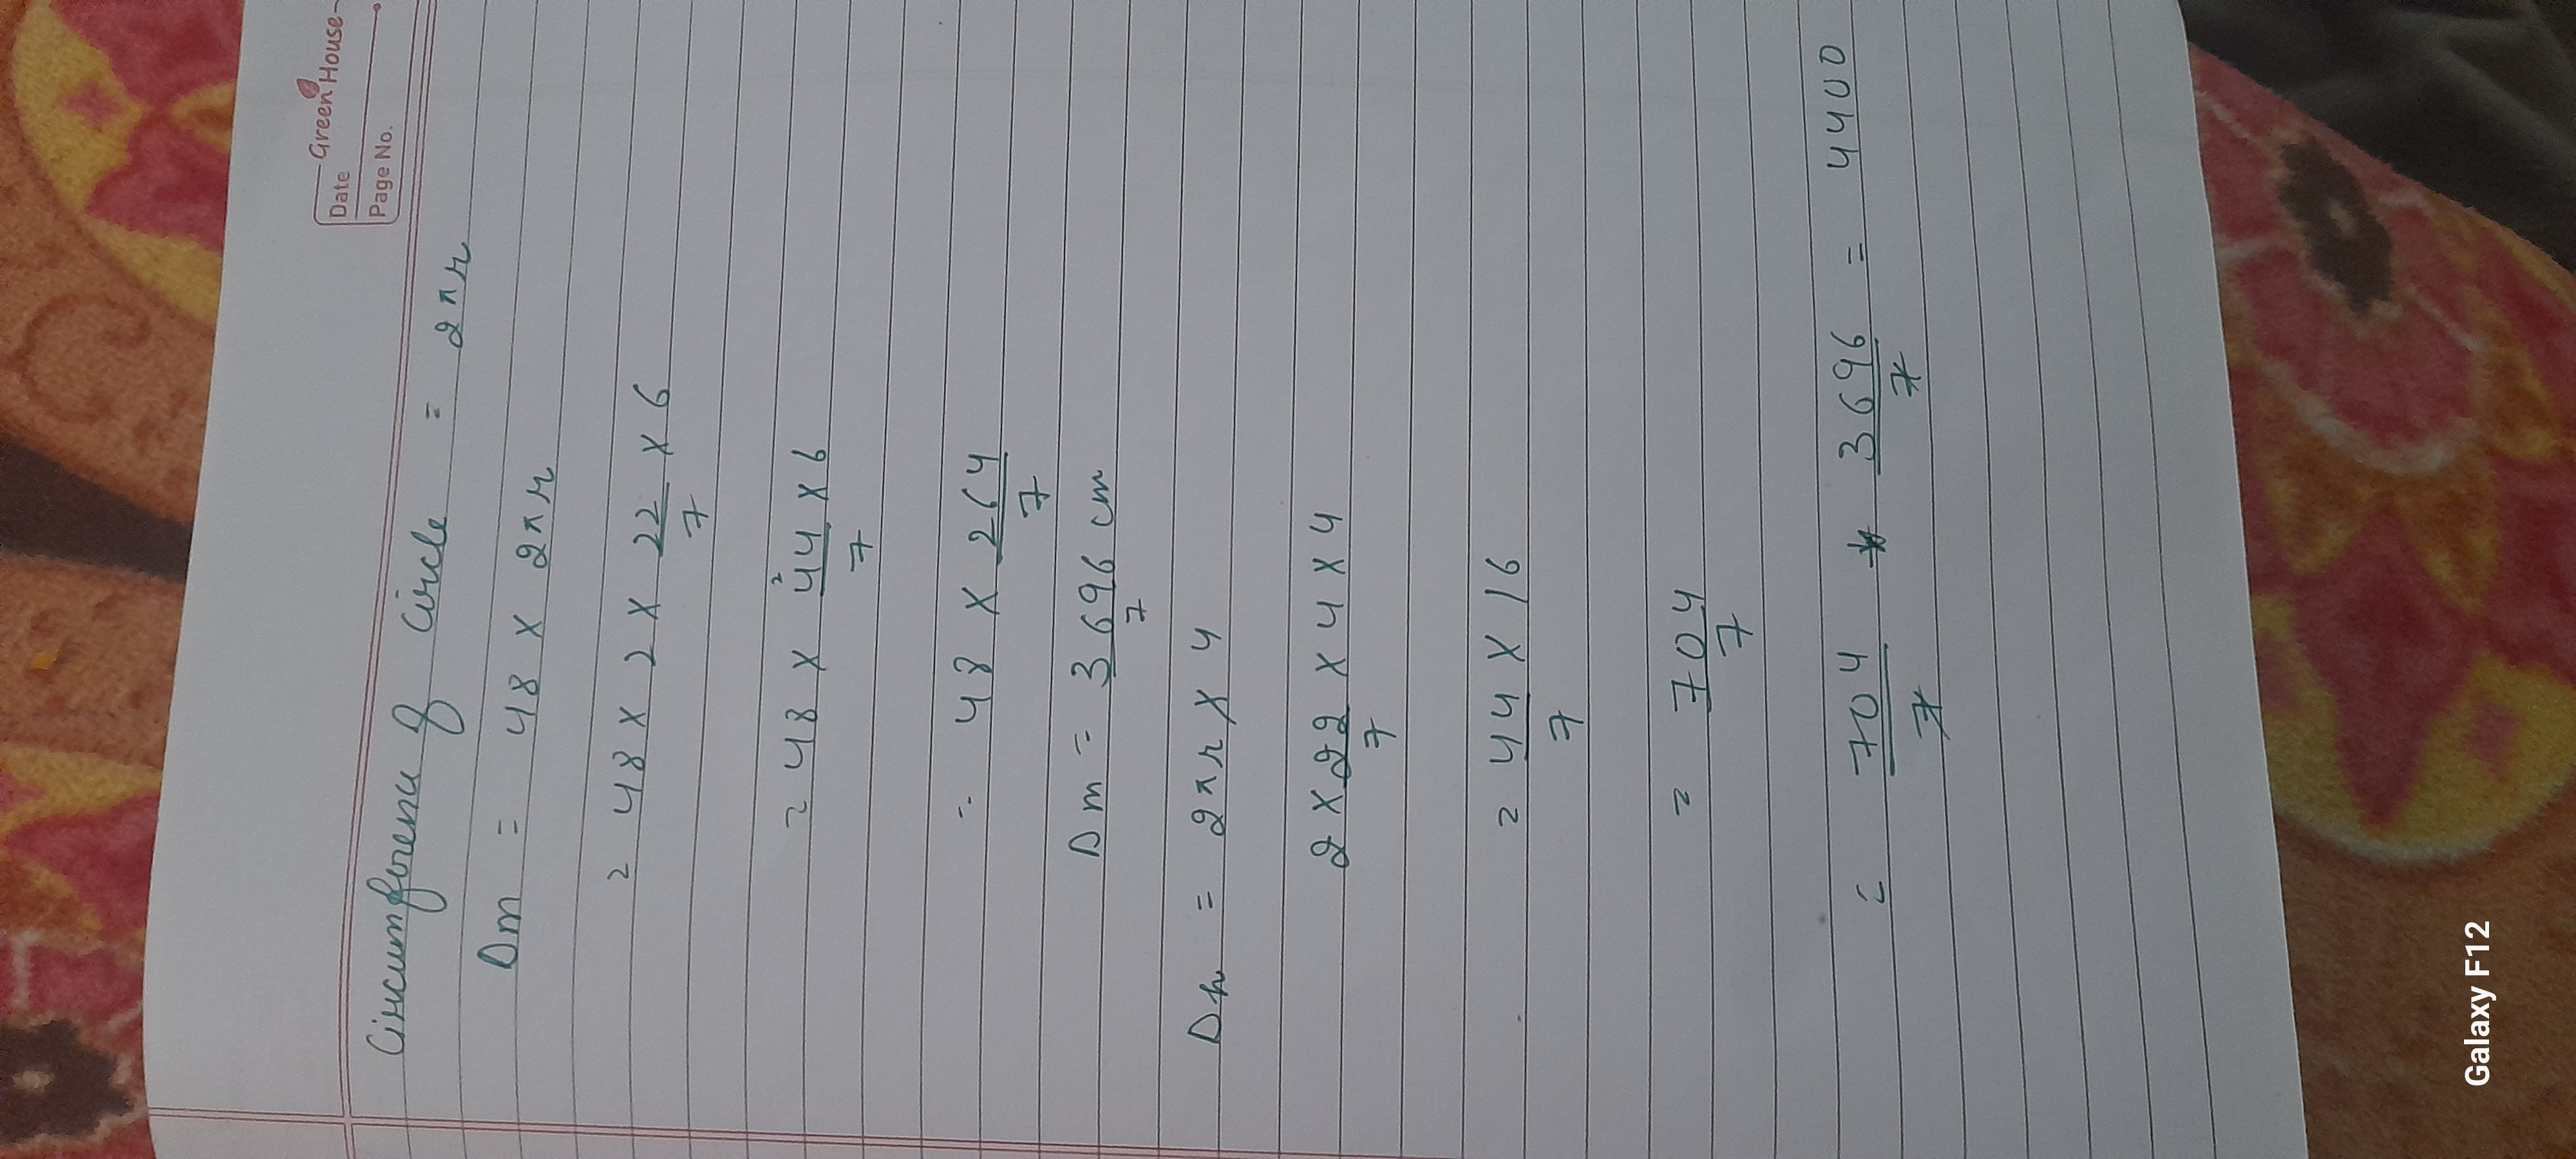 Green House
Date
Page No.
Circumference of circle = 2πr
Dm = 48 x 2πr
= 48 x 2 x 22/7 x 6
= 48 x 44/7 x 6
= 48 x 264/7
Dm = 3696/7 cm
Dh = 2πr x 4
2 x 22/7 x 4 x 4
= 44/7 x 16
= 704/7
= 704/7 3696/7 = 4400
Galaxy F12